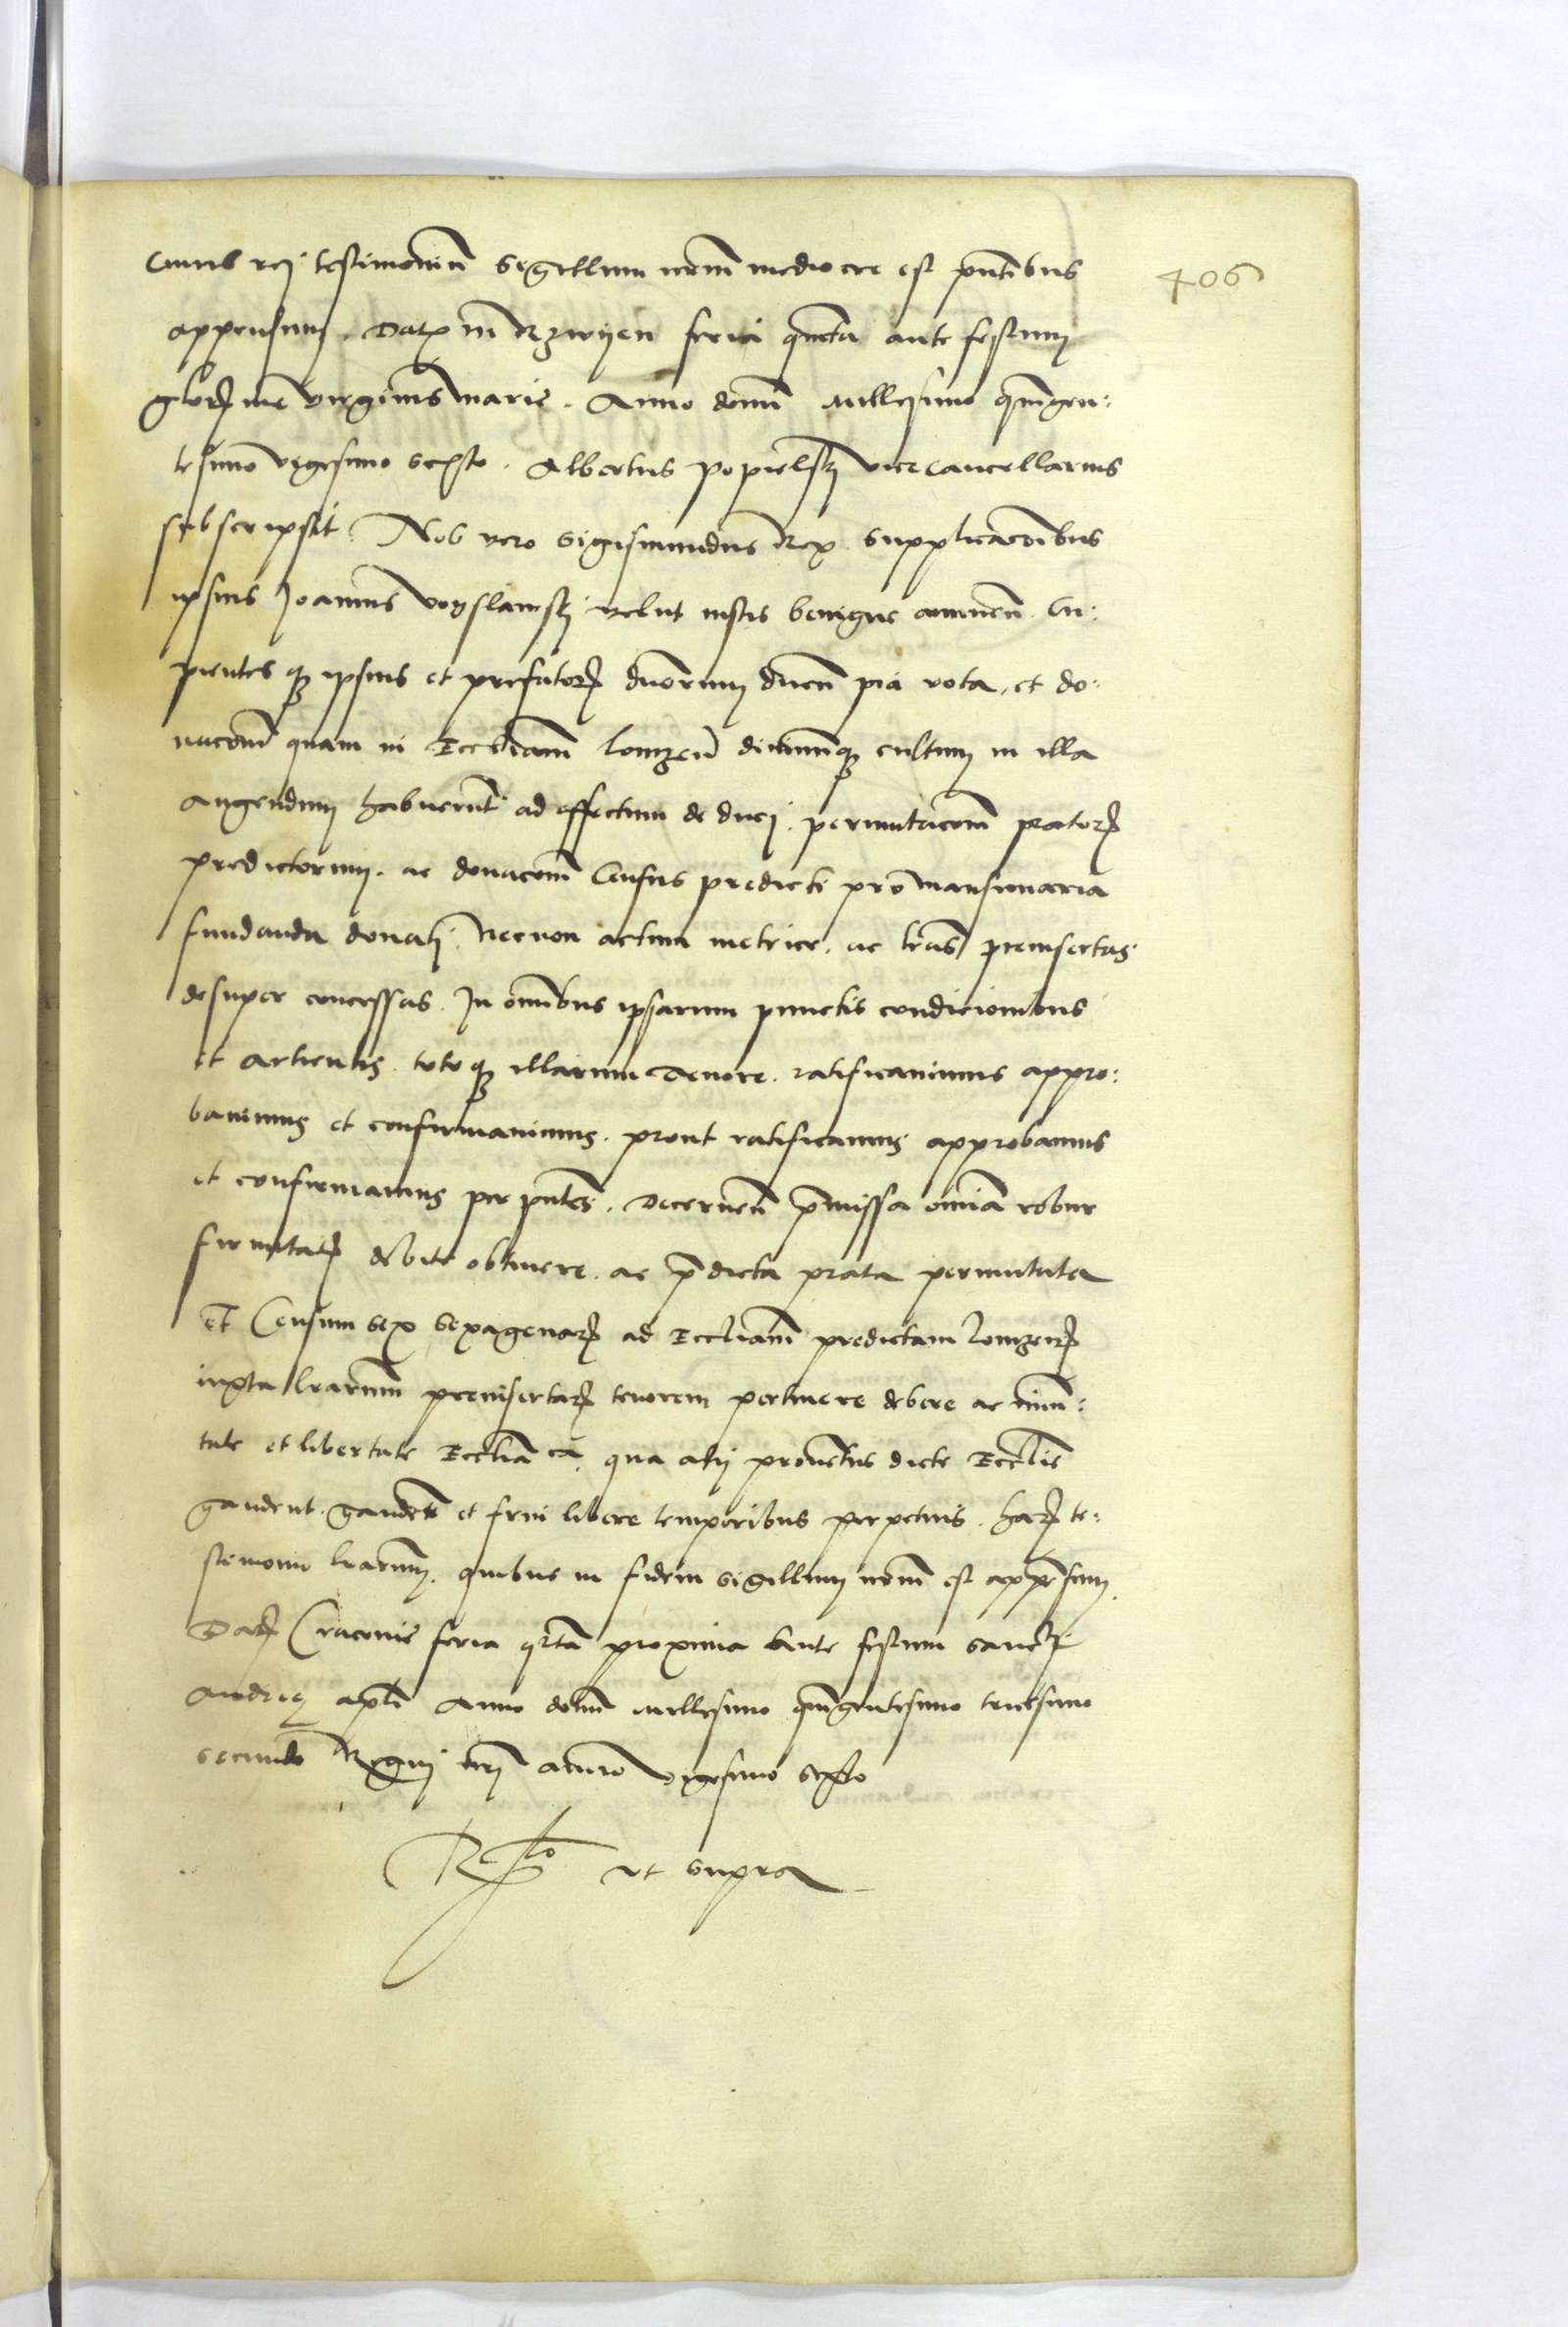 406
Cuius rei testimonium Sigillum nrm mediocre est pntibus
appensum. Dat in Rzwyen feria quinta ante festum
glorme virginis marie. Anno domi Millesimo quingen:
tesimo vigesimo sexto. Albertus popielskj vicecancellarius
subscripsit Nos vero Sigismundus Rex supplicacoibus
ipsius Joannis voyslawskj velut iustis benigne annuen Cu:
pientes q ipsius et prefator duorum ducu pia vota, et do:
nacom quam in Eccliam lomzen diuinumq cultum in illa
augendum habuerunt ad effectum deducj. permutacom prator
predictorum. ac donacom Census predicti pro mansionaria
fundanda donatj Necnon actum metrice. ac lras preinsertas
desuper concessas. In omibus ipsarum punctis condicionibus
et articulis. totoq illarum tenore. ratificauimus appro:
bauimus et confirmauimus. prout ratificamus approbamus
et confirmamus per pntes. Decernen pmissa omia robur
firmitat debite obtinere. ac pdicta prata permutata
Et Censum sex sexagenar ad Eccliam predictam lomzen
iuxta lrarum preinsertar tenorem pertinere debere ac immu:
tate et libertate Ecclia ca. qua alij prouentus dicte Ecclie
gaudent. gaudere et frui libere temporibus perpetuis. har te:
stimonio lrarum. quibus in fidem sigillum nrm est appensum.
Dat Cracouie feria qrta proxima Ante festum sanctj
Andree apli Anno domi Millesimo quingentesimo tricesimo
secundo Regnj nrj anno vigesimo sexto
Rlo ut supra